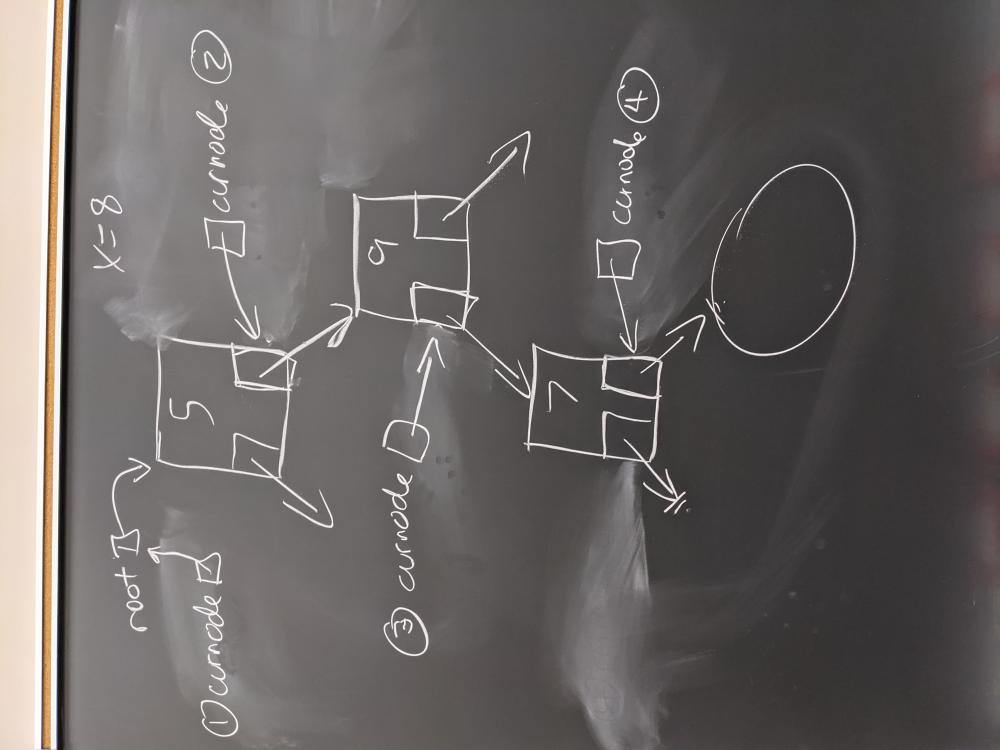 X=8
root
5
① curnode
curnode ②
9
③ curnode
7
curnode ④